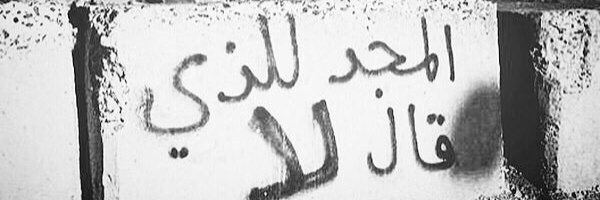 المجد للذي
قال لا